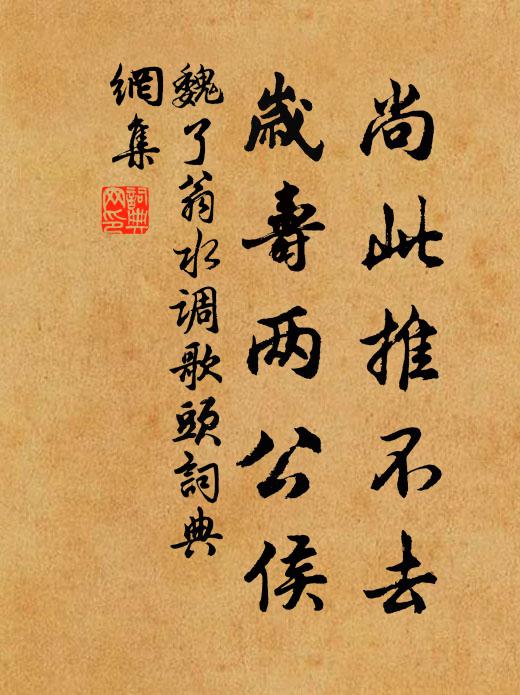 尚此推不去
歳壽两公侯
魏了翁水调歌頭詞典
網集
詞典
网印